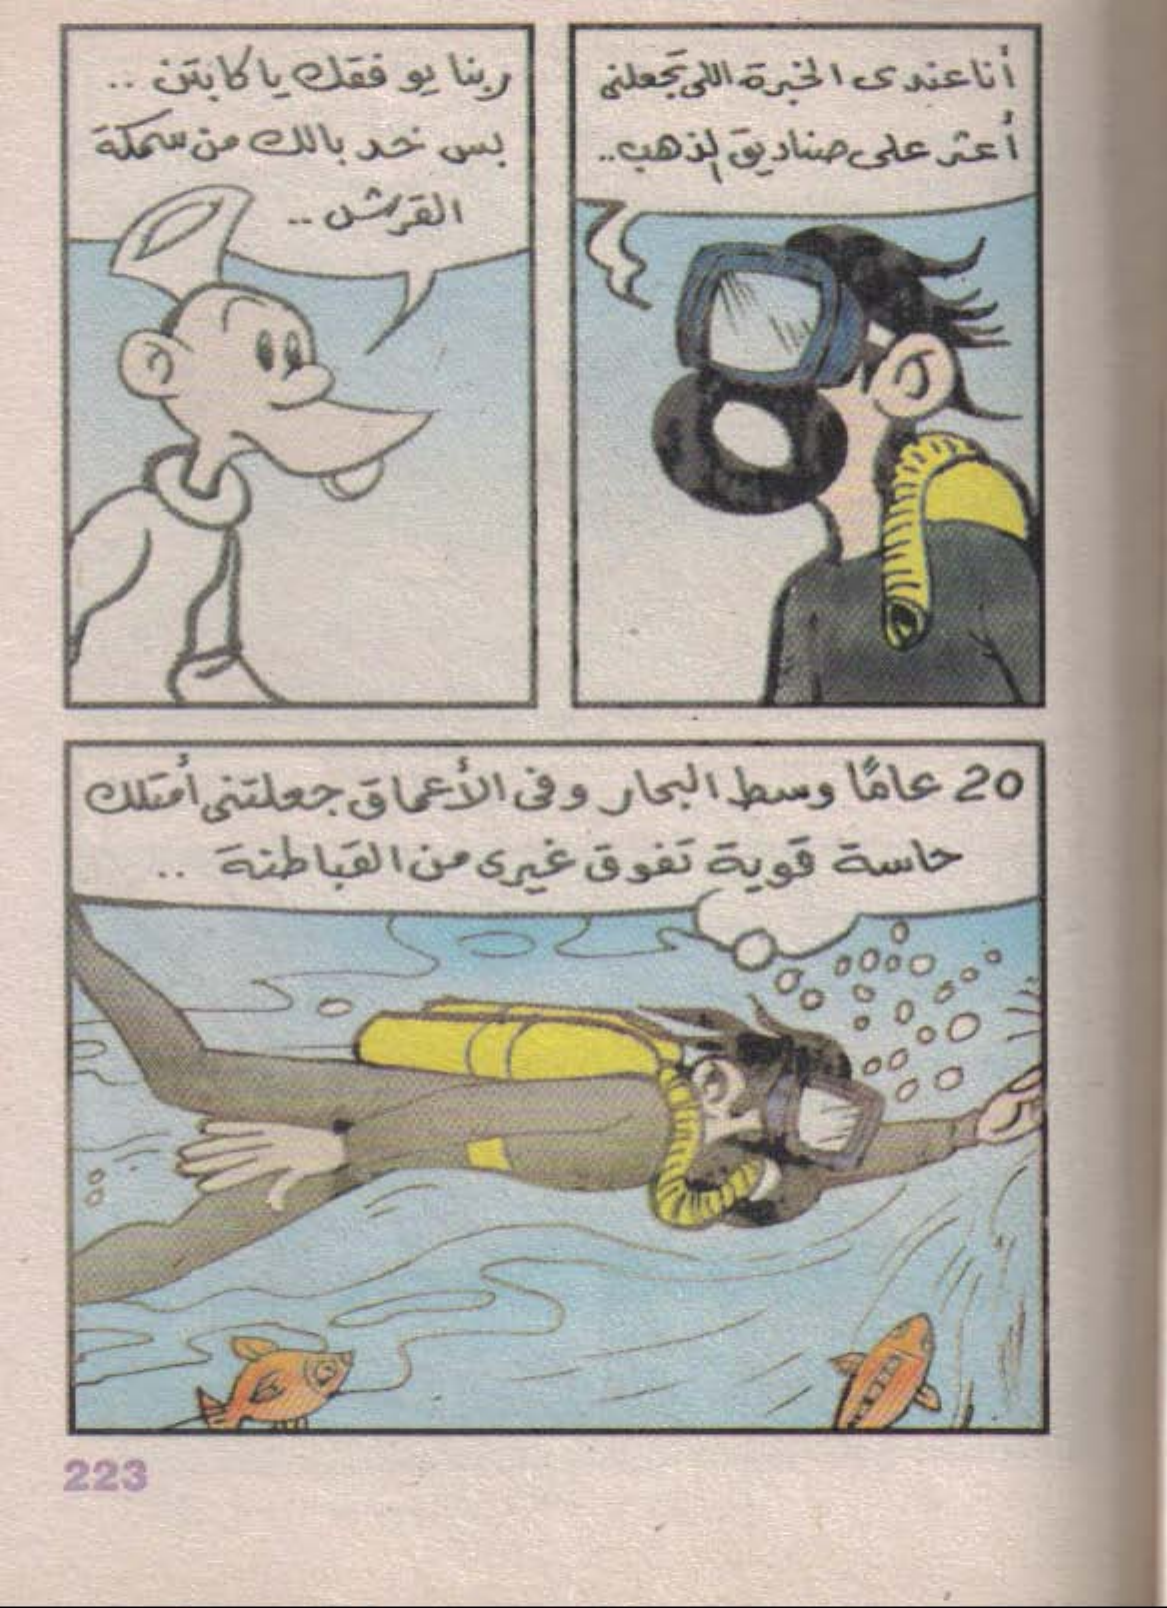 أنا عندى الخبرة اللى تجعلنى
أعثر على صناديق الذهب..
ربنا يوفقك يا كابتن ..
بس خد بالك من سمكة
القرش ..
20 عامًا وسط البحار وفى الأعماق جعلتنى أمتلك
حاسة قوية تفوق غيرى من القباطنة ..
223